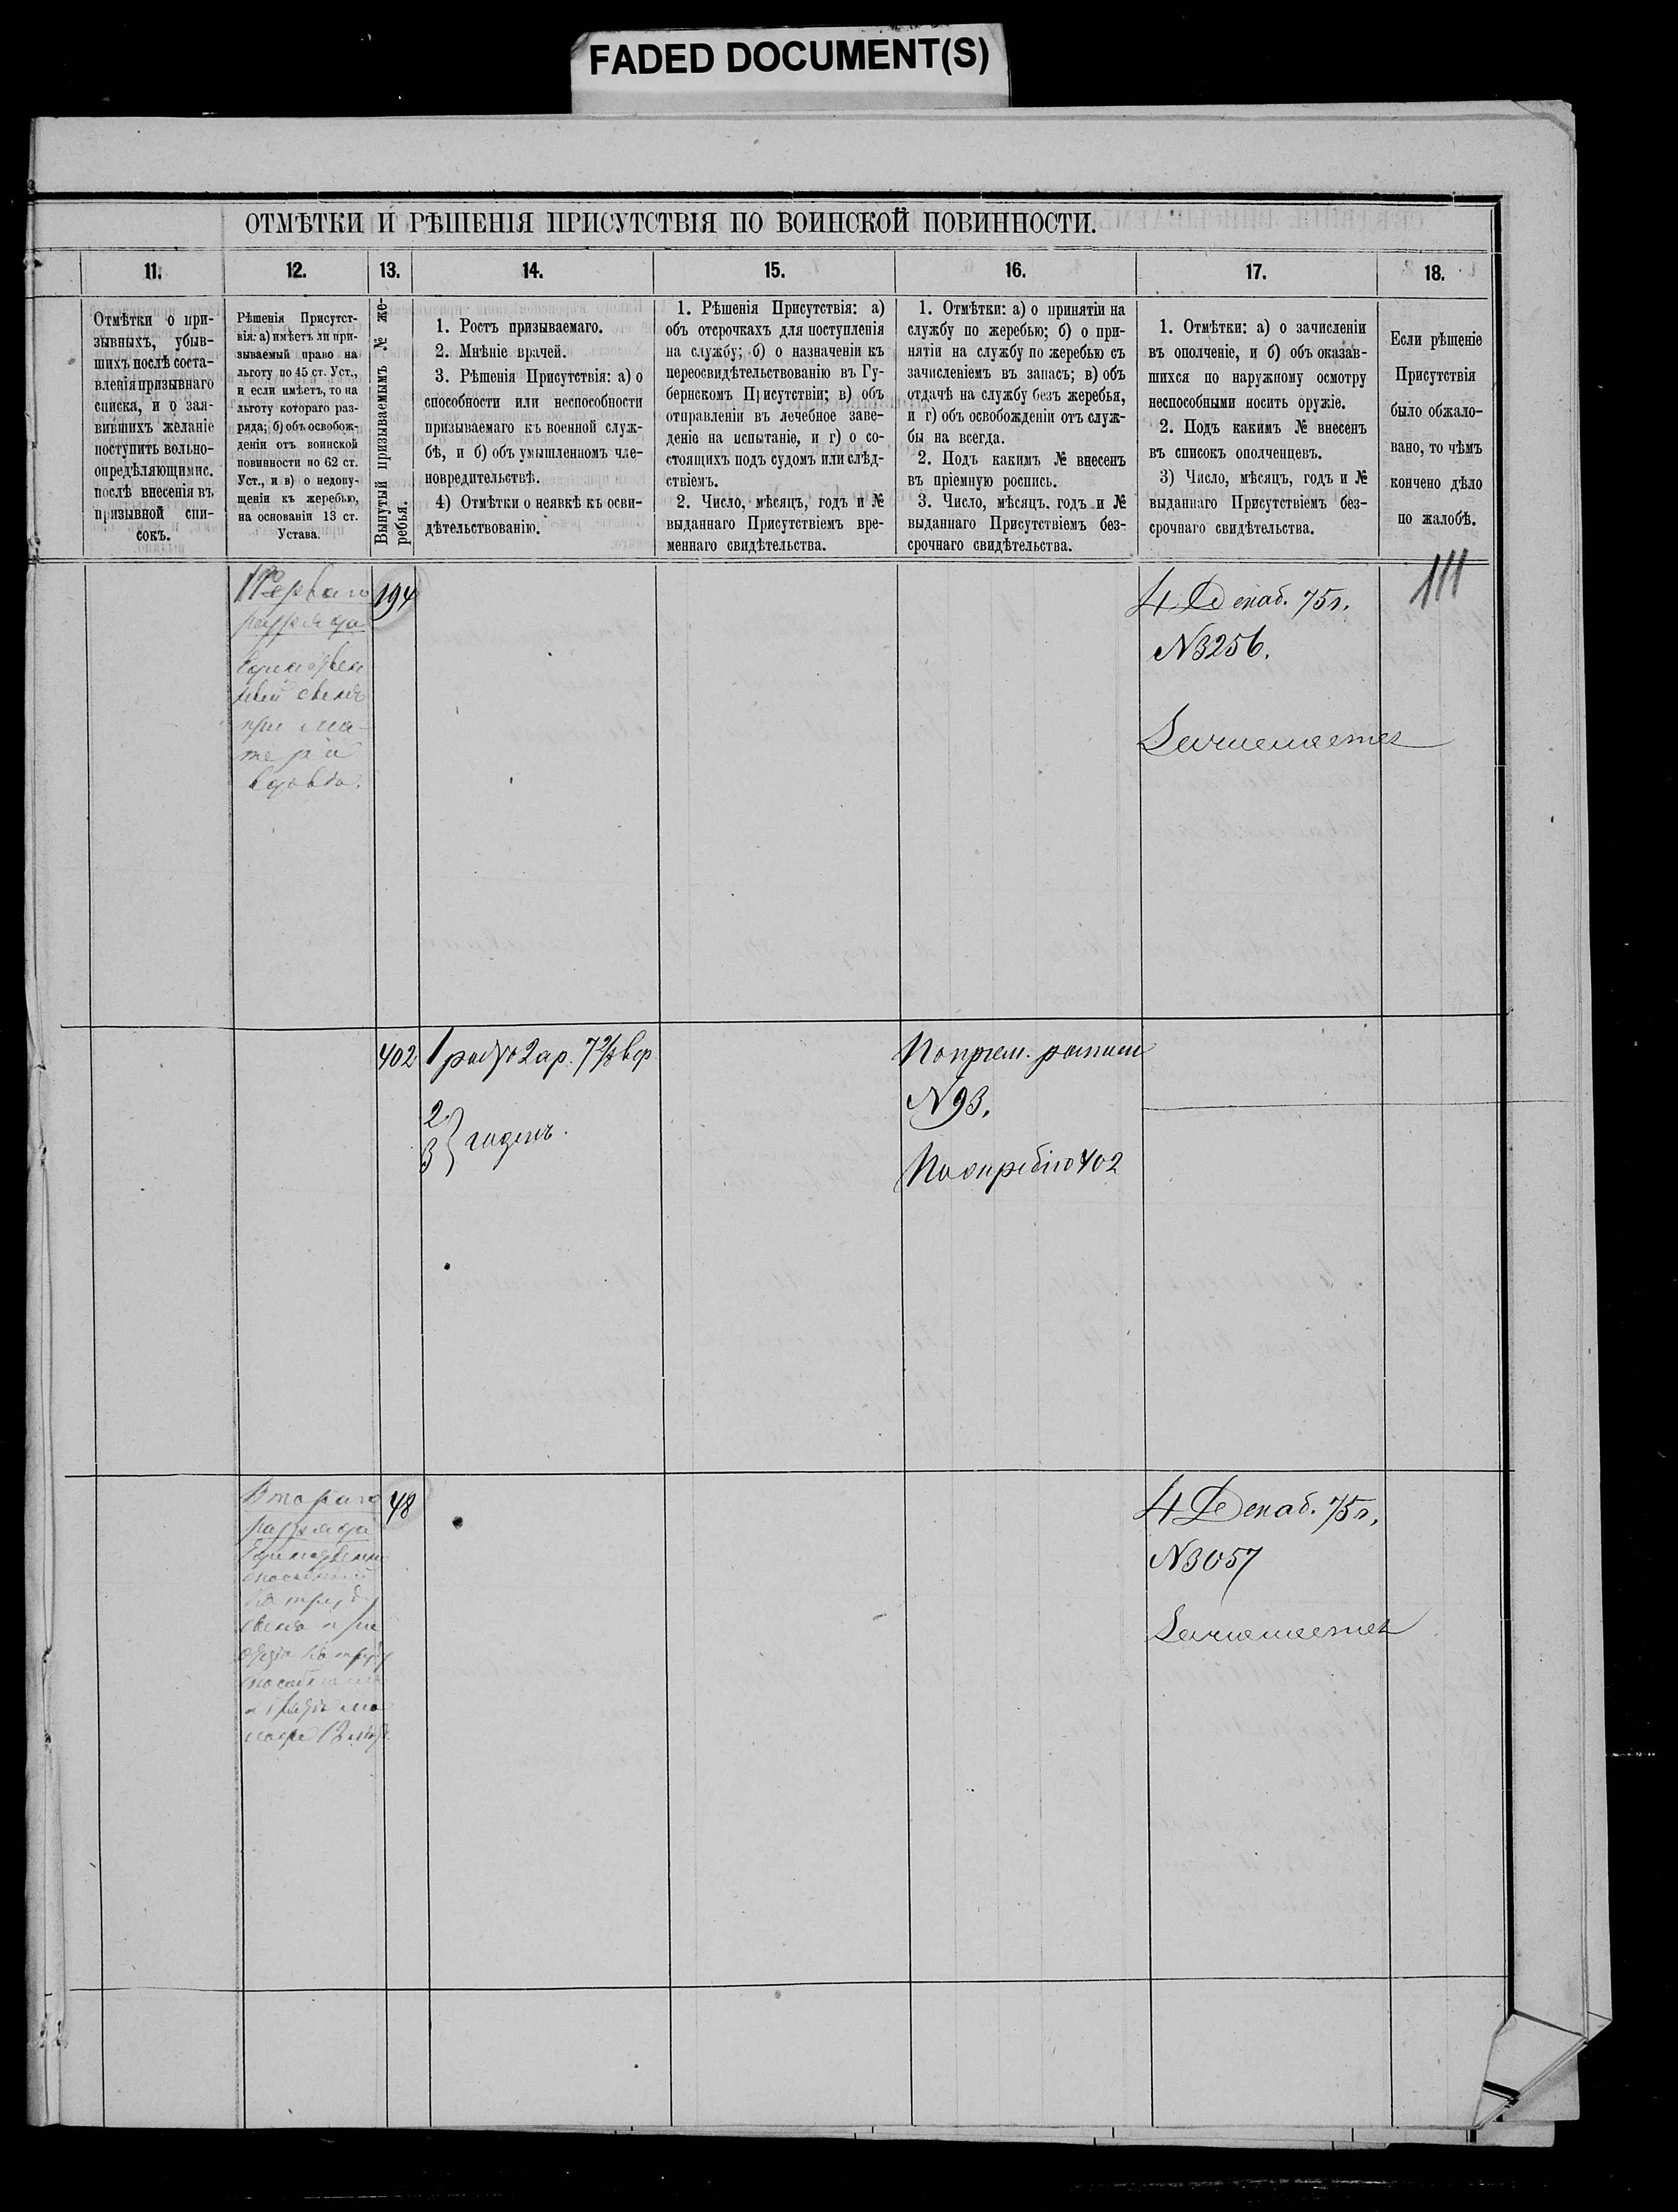 FADED DOCUMENT(S)
ОТМѢТКИ И РѢШЕНІЯ ПРИСУТСТВІЯ ПО ВОИНСКОЙ ПОВИННОСТИ.
11.
12.
13.
14.
15.
16.
17.
18.
Отмѣтки о при-
зывныхъ, убыв-
шихъ послѣ соста-
вленія призывнаго
списка, и о зая-
вившихъ желаніе
поступить вольно-
опредѣляющимис.
послѣ внесенія въ
призывной спи-
сокъ.
Рѣшенія Присутст-
вія: а) имѣетъ ли при-
зываемый право на
льготу по 45 ст. Уст.,
и если имѣетъ, то на
льготу котораго раз-
ряда; б) объ освобож-
деніи отъ воинской
повинности по 62 ст.
Уст., и в) о недопу-
щеніи къ жеребью,
на основаніи 13 ст.
Устава.
Вынутый призываемымъ № же-
ребья.
1. Ростъ призываемаго.
2. Мнѣніе врачей.
3. Рѣшенія Присутствія: а) о
способности или неспособности
призываемаго къ военной служ-
бѣ, и б) объ умышленномъ чле-
новредительствѣ.
4) Отмѣтки о неявкѣ къ осви-
дѣтельствованію.
1. Рѣшенія Присутствія: а)
объ отсрочкахъ для поступленія
на службу; б) о назначеніи къ
переосвидѣтельствованію въ Гу-
бернскомъ Присутствіи; в) объ
отправленіи въ лечебное заве-
деніе на испытаніе, и г) о со-
стоящихъ подъ судомъ или слѣд-
ствіемъ.
2. Число, мѣсяцъ, годъ и №
выданнаго Присутствіемъ вре-
меннаго свидѣтельства.
1. Отмѣтки: а) о принятіи на
службу по жеребью; б) о при-
нятіи на службу по жеребью съ
зачисленіемъ въ запасъ; в) объ
отдачѣ на службу безъ жеребья,
и г) объ освобожденіи отъ служ-
бы на всегда.
2. Подъ какимъ № внесенъ
въ пріемную роспись.
3. Число, мѣсяцъ, годъ и №
выданнаго Присутствіемъ без-
срочнаго свидѣтельства.
1. Отмѣтки: а) о зачисленіи
въ ополченіе, и б) объ оказав-
шихся по наружному осмотру
неспособными носить оружіе.
2. Подъ какимъ № внесенъ
въ списокъ ополченцевъ.
3) Число, мѣсяцъ, годъ и №
выданнаго Присутствіемъ без-
срочнаго свидѣтельства.
Если рѣшеніе
Присутствія
было обжало-
вано, то чѣмъ
кончено дѣло
по жалобѣ.
111
Перваго
разряда
Единствен
ный сынъ
при ма-
тери
вдовѣ.
194
4 Декаб. 75 г.
N 3256.
Зачисляется
402
2 ар. 7 2/8 вер.
2
3} годенъ.
По прiем. росписи
N 93.
402
Втораго
разряда
48
4 Декаб. 75 г.
N 3057
Зачисляется